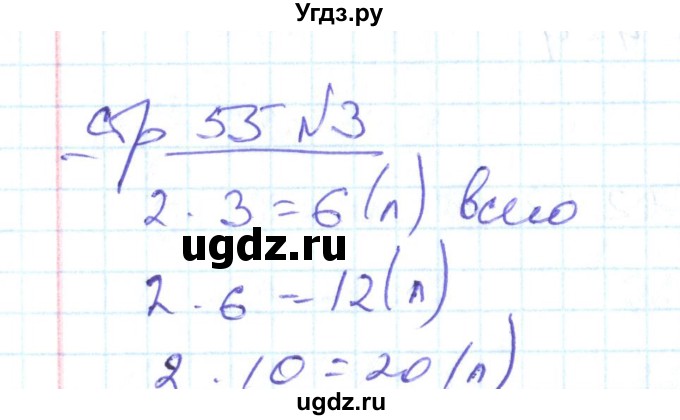 Угдз.ру
стр 55 №3
2 · 3 = 6 (л) всего
ugdz.ru
2 · 6 = 12 (л)
2 · 10 = 20 (л)
ugdz.ru